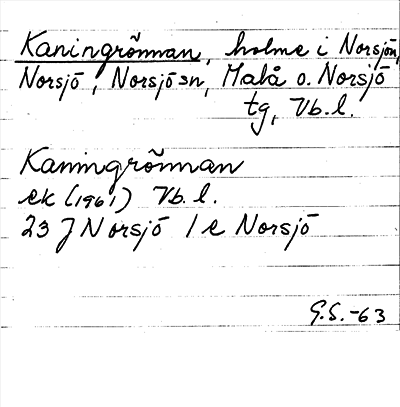 Kaningrönnan, holme i Norsjön,
Norsjö, Norsjö sn, Malå o. Norsjö
tg, Vb. l.
Kaningrönnan
ek (1961) Vb. l.
23 J Norsjö 1 e Norsjö
G.S. -63